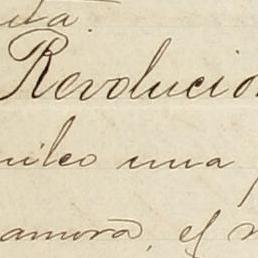 ita.
Revolucio
uilco una
amora, el